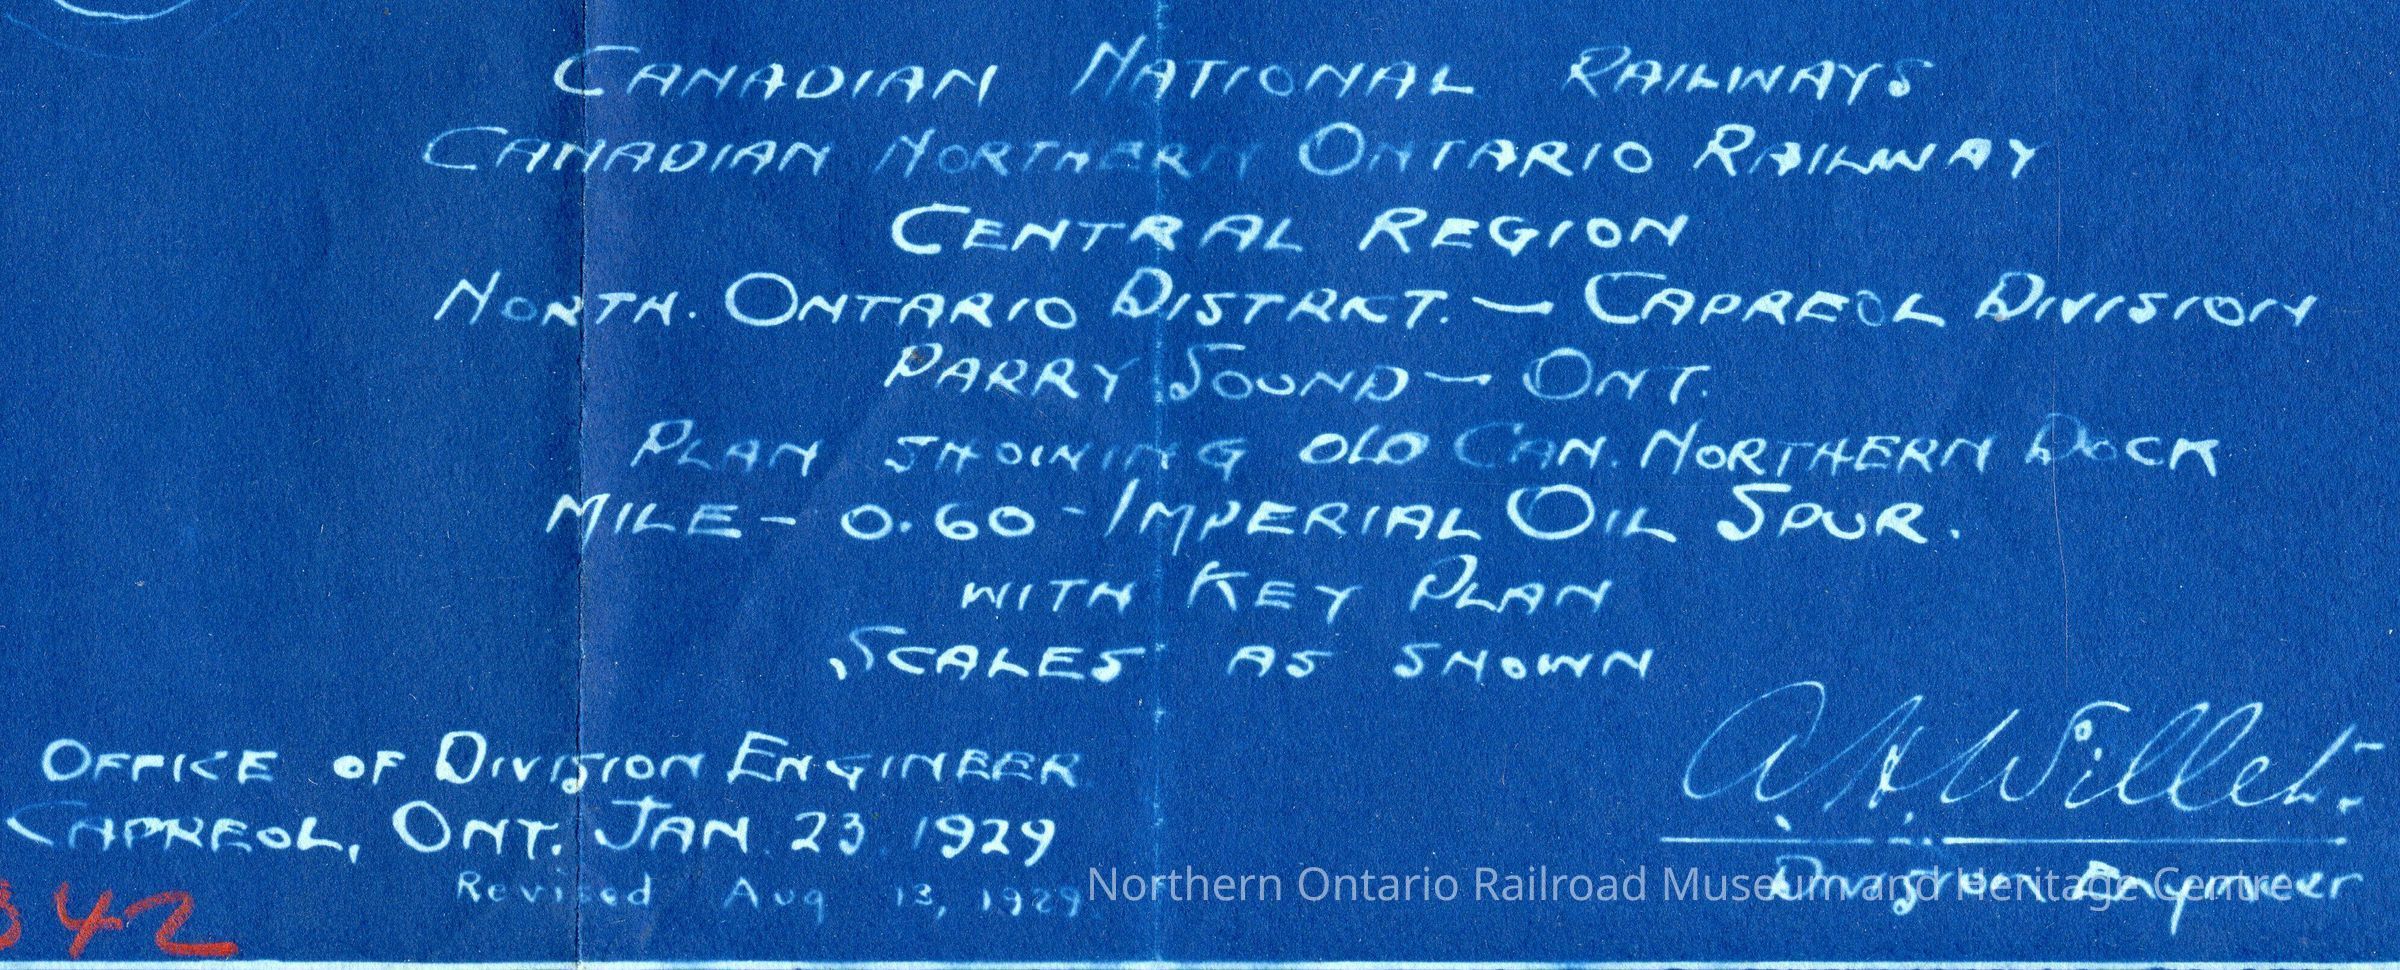 CANADIAN NATIONAL RAILWAYS
CANADIAN NORTHERN ONTARIO RAILWAY
CENTRAL REGION
NORTH. ONTARIO DISTRICT. — CAPREOL DIVISION
PARRY SOUND — ONT.
PLAN SHOWING OLD CAN. NORTHERN DOCK
MILE - 0.60 - IMPERIAL OIL SPUR.
WITH KEY PLAN
SCALES AS SHOWN
A. H. Willett
OFFICE OF DIVISION ENGINEER
CAPREOL, ONT. JAN 23 1929
Division Engineer
Revised Aug 13, 1929
Northern Ontario Railroad Museum and Heritage Centre
42